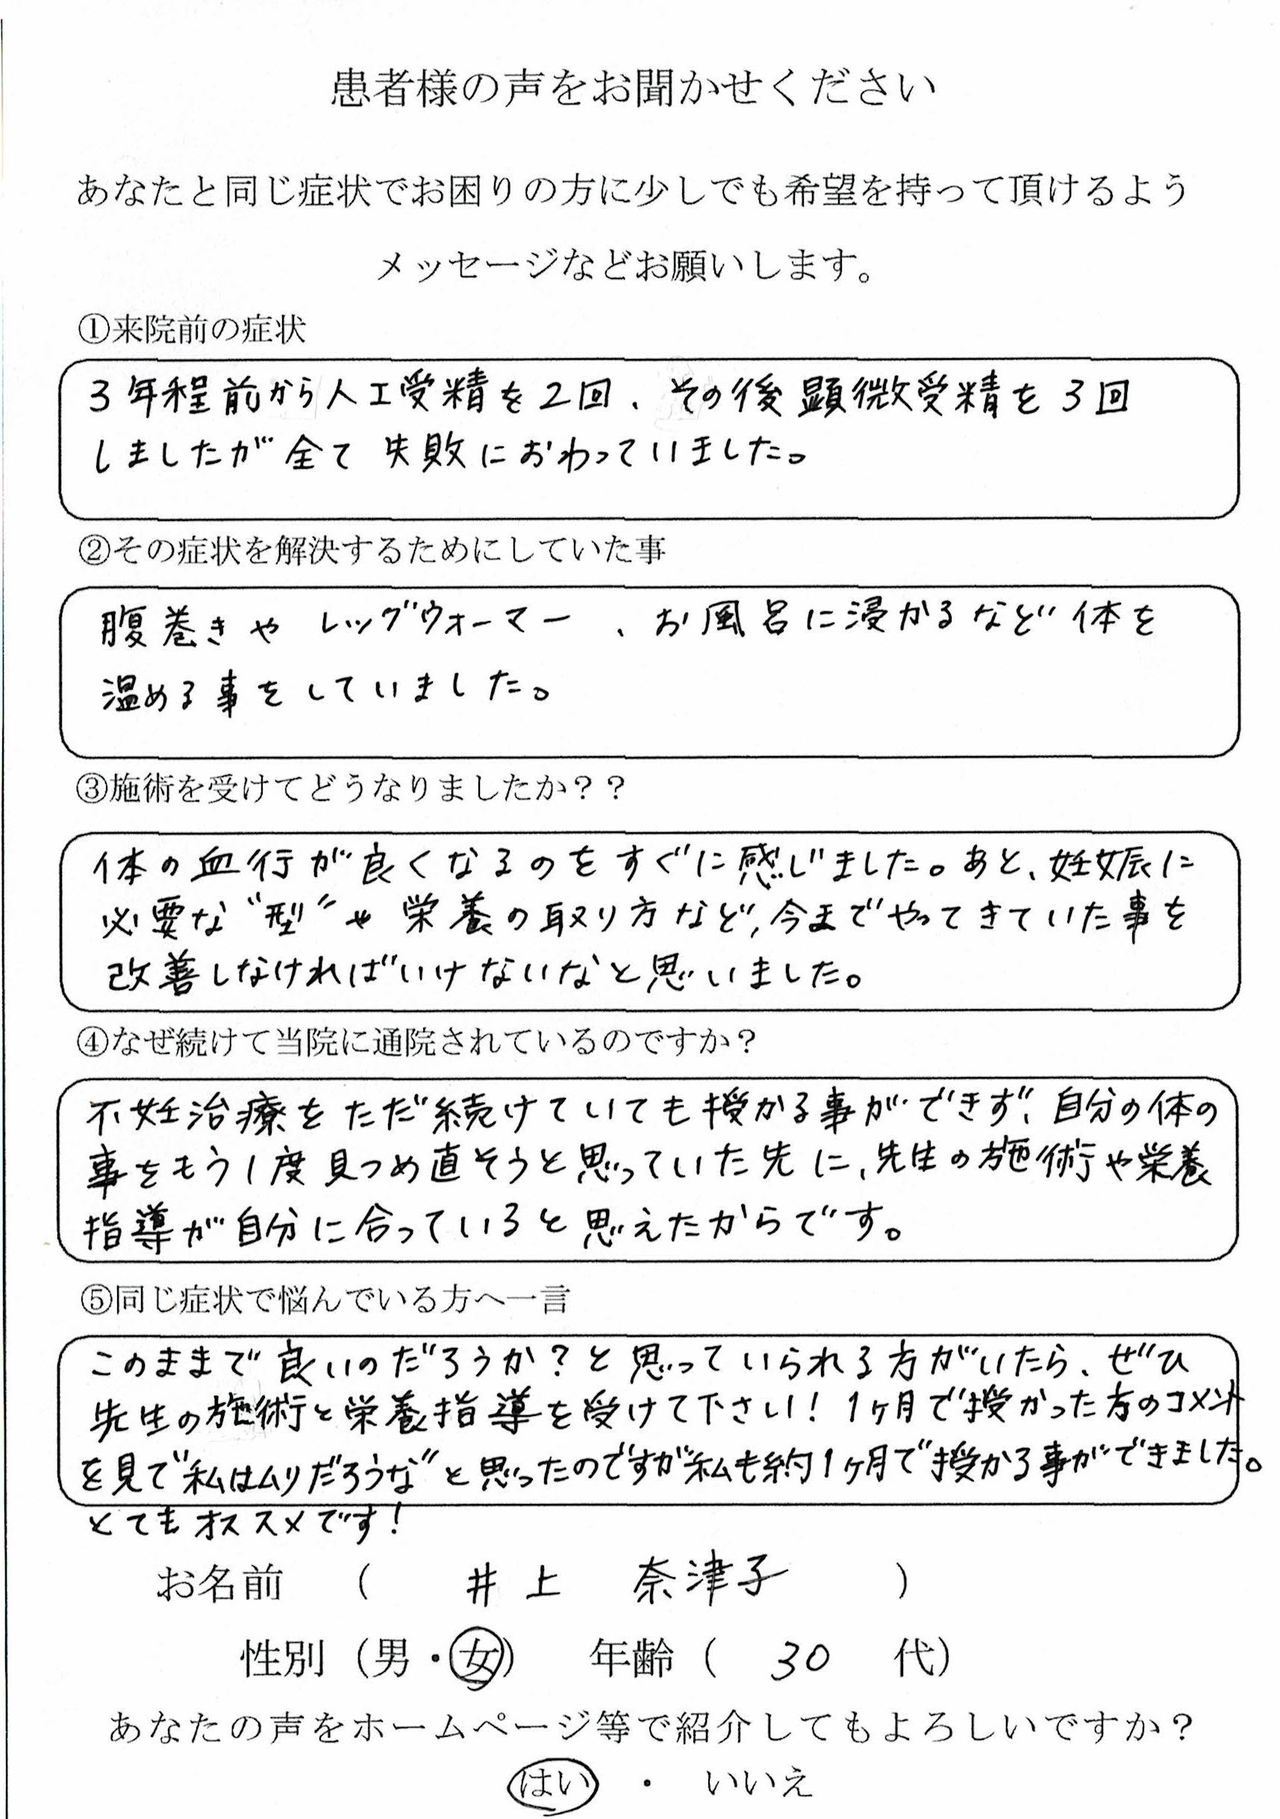 患者様の声をお聞かせください
あなたと同じ症状でお困りの方に少しでも希望を持って頂けるよう
メッセージなどお願いします。
①来院前の症状
3年程前から人工受精を2回、その後顕微受精を3回
しましたが全て失敗におわっていました。
②その症状を解決するためにしていた事
腹巻きやレッグウォーマー、お風呂に浸かるなど体を
温める事をしていました。
③施術を受けてどうなりましたか？？
体の血行が良くなるのをすぐに感じました。あと、妊娠に
必要な"型"や栄養の取り方など、今までやってきていた事を
改善しなければいけないなと思いました。
④なぜ続けて当院に通院されているのですか？
不妊治療をただ続けていても授かる事ができず、自分の体の
事をもう1度見つめ直そうと思っていた先に、先生の施術や栄養
指導が自分に合っていると思えたからです。
⑤同じ症状で悩んでいる方へ一言
このままで良いのだろうか？と思っていられる方がいたら、ぜひ
先生の施術と栄養指導を受けて下さい！1ヶ月で授かった方のコメント
を見て"私はムリだろうな"と思ったのですが私も約1ヶ月で授かる事ができました。
とてもオススメです！
お名前（井上 奈津子）
性別（男・女） 年齢（30代）
あなたの声をホームページ等で紹介してもよろしいですか？
はい ・ いいえ